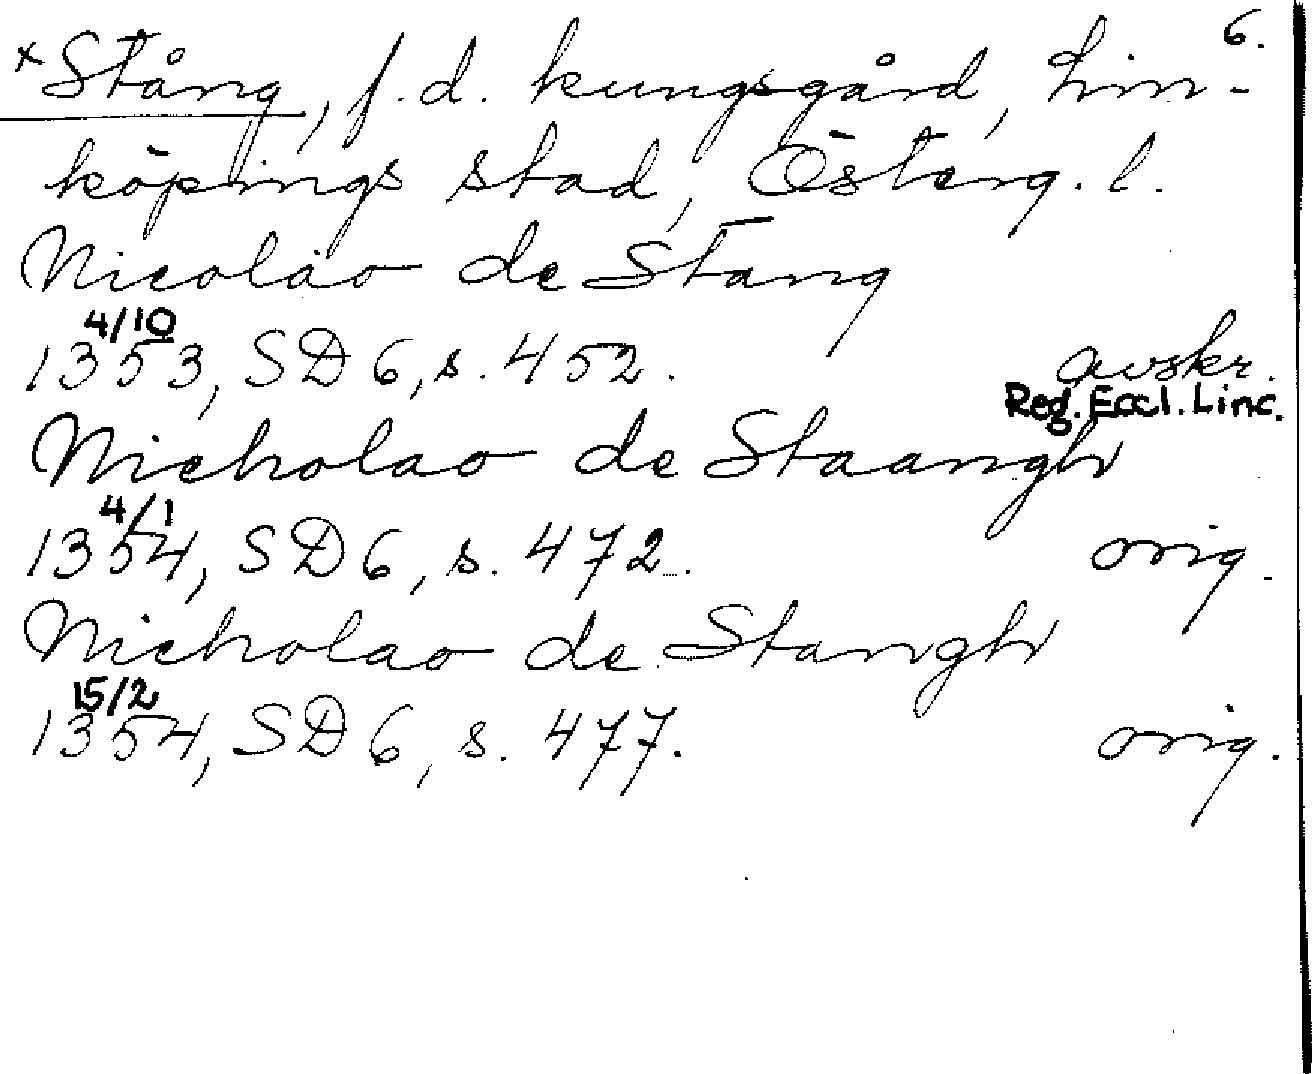 6.
×Stång, f.d. kungsgård, Lin-
köpings stad, Österg. l.
Nicolao de Stang
4/10
1353, SD 6, s. 452. avskr.
Reg. Eccl. Linc.
Nicholao de Staangh
4/1
1354, SD 6, s. 472. orig.
Nicholao de Stangh
15/2
1354, SD 6, s. 477. orig.